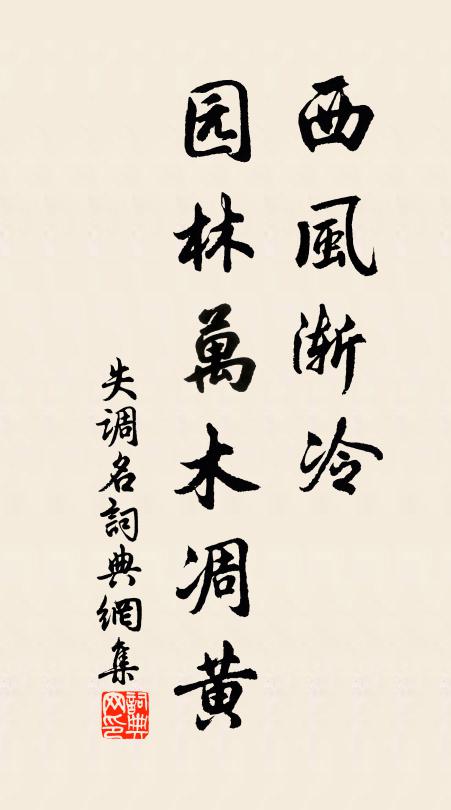 西風渐冷
园林萬木凋黄
失调名詞典網集
詞典网印